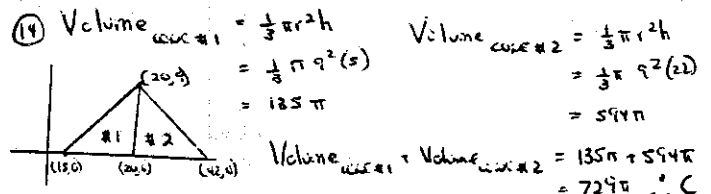 (14) Volume cone #1 = 1/3 πr²h
= 1/3 π 9²(5)
= 135 π
Volume cone #2 = 1/3 πr²h
= 1/3 π 9²(22)
= 594π
(20,9)
#1 #2
(15,0) (20,0) (42,0)
Volume cone #1 + Volume cone #2 = 135π + 594π
= 729π ∴ C